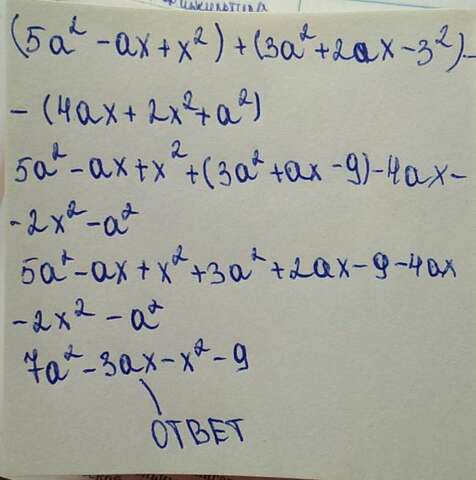 (5a² - ax + x²) + (3a² + 2ax - 3²) -
- (4ax + 2x² + a²)
5a² - ax + x² + (3a² + ax - 9) - 4ax -
- 2x² - a²
5a² - ax + x² + 3a² + 2ax - 9 - 4ax
- 2x² - a²
7a² - 3ax - x² - 9
ОТВЕТ